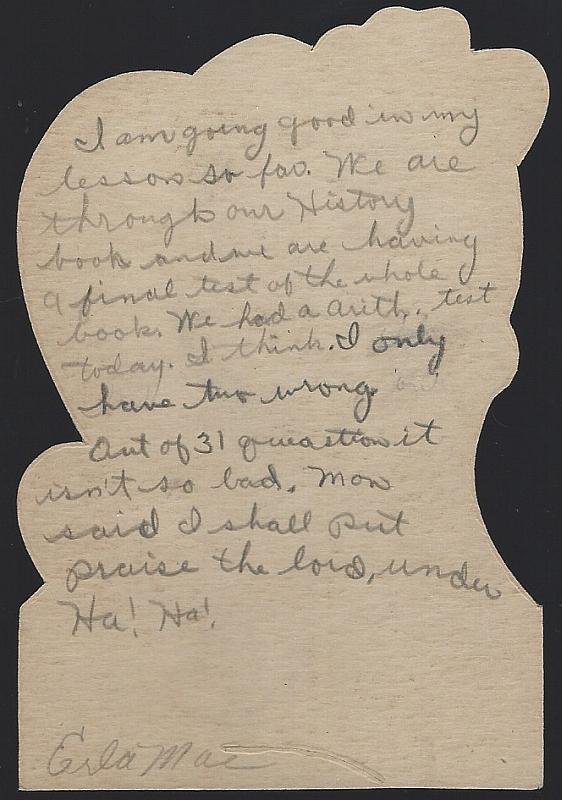 I am going good in my
lesson so far. We are
through our History
book and we are having
a final test of the whole
book. We had a arith. test
today. I think. I only
have two wrong
Out of 31 queastion it
isn't so bad. Mon
said I shall put
praise the lord, under
Ha! Ha!
Erla Mae